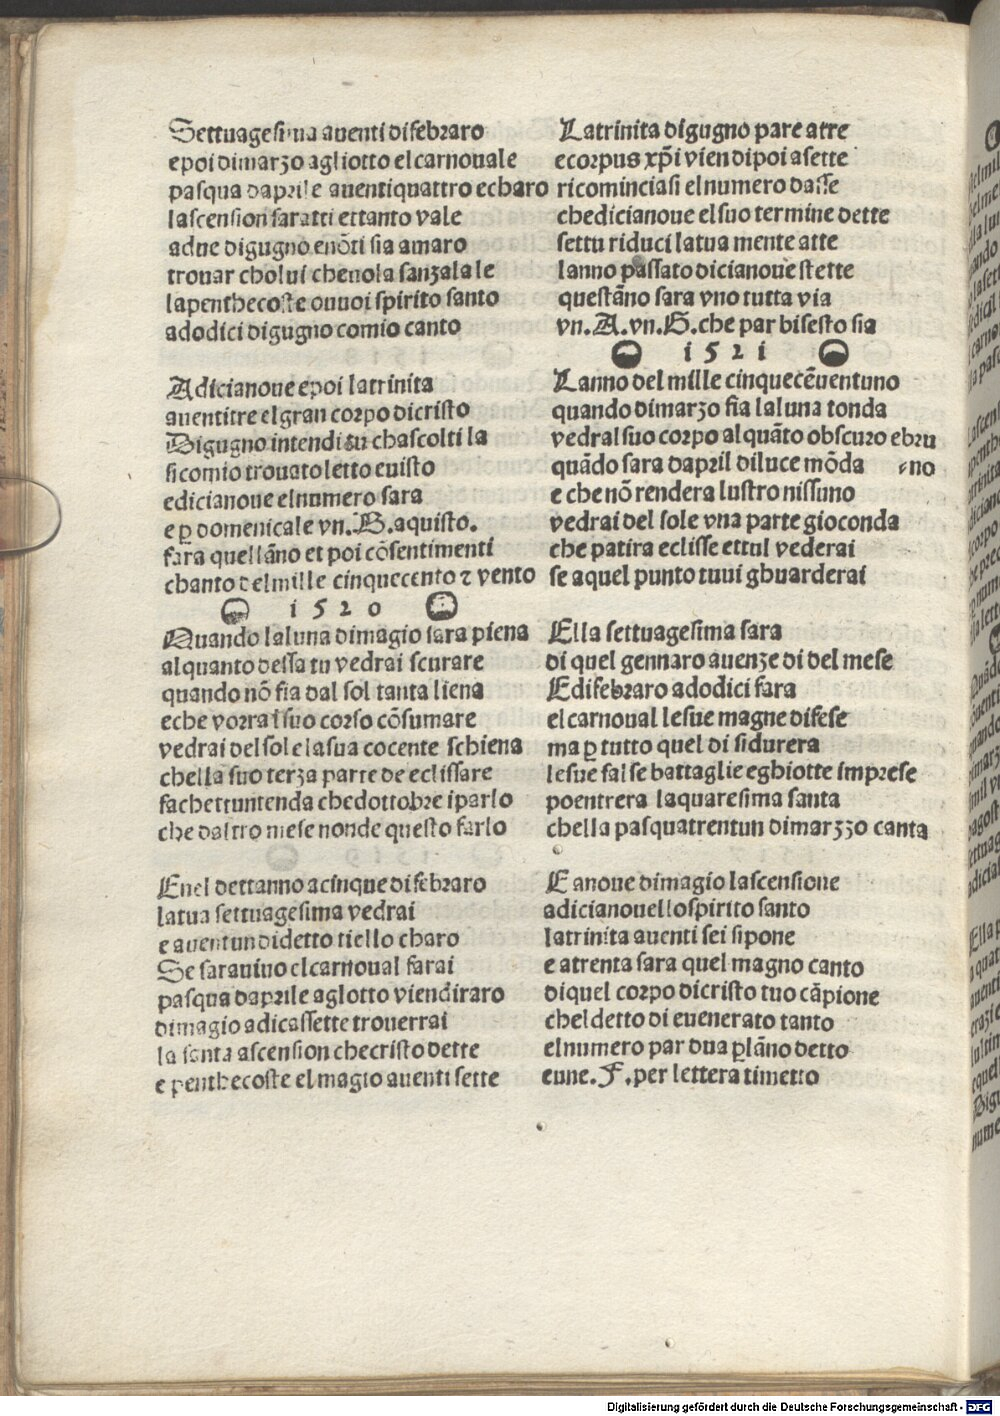 Settuagesima auenti difebraro
epoi dimarzo agliotto el carnouale
pasqua daprile auentiquattro echaro
lascension saratti ettanto vale
adue digugno enōti sia amaro
trouar cholui cheuola sanzala le
lapenthecoste ouuoi spirito santo
adodici digugno comio canto
Adicianoue epoi latrinita
auentitre elgran corpo dicristo
Digugno intendi tu chascolti la
sicomio trouato letto euisto
edicianoue elnumero sara
e ꝑ domenicale vn.B.aquisto.
fara quellāno et poi cōsentimenti
chanto delmille cinquecento ⁊ vento
1520
Quando laluna dimagio sara piena
alquanto dessa tu vedrai scurare
quando nō fia dal sol tanta liena
eche vorra isuo corso cōsumare
vedrai delsole lasua cocente schiena
chella suo terza parte de eclissare
fachettuntenda chedottobre iparlo
che daltro mese nonde questo farlo
Enel dettanno acinque difebraro
latua settuagesima vedrai
e auentundidetto tiello charo
Se sarauiuo elcarnoual farai
pasqua daprile aglotto viendiraro
dimagio adicassette trouerrai
la santa ascension checristo dette
e penthecoste el magio auenti sette
Latrinita digugno pare atre
ecorpus xp̄i vien dipoi asette
ricominciasi elnumero dasse
chedicianoue elsuo termine dette
settu riduci latua mente atte
lanno passato dicianoue stette
questāno sara vno tutta via
vn.A.vn.G.che par bisesto sia
1521
Lanno del mille cinquecēuentuno
quando dimarzo fia laluna tonda
vedral suo corpo alquāto obscuro ebru
quādo sara dapril diluce mōda ⸗no
e che nō rendera lustro nissuno
vedrai del sole vna parte gioconda
che patira eclisse ettul vederai
se aquel punto tuui gbuarderai
Ella settuagesima sara
di quel gennaro auenze di del mese
Edifebraro adodici fara
el carnoual lesue magne difese
ma ꝑ tutto quel di sidurera
lesue false battaglie eghiotte imprese
poentrera laquaresima santa
chella pasquatrentun dimarzzo canta
Eanoue dimagio lascensione
adicianouellospirito santo
latrinita auenti sei sipone
e atrenta sara quel magno canto
diquel corpo dicristo tuo cāpione
cheldetto di euenerato tanto
elnumero par dua ꝑlāno detto
eune.F.per lettera timetto
Digitalisierung gefördert durch die Deutsche Forschungsgemeinschaft - DFG